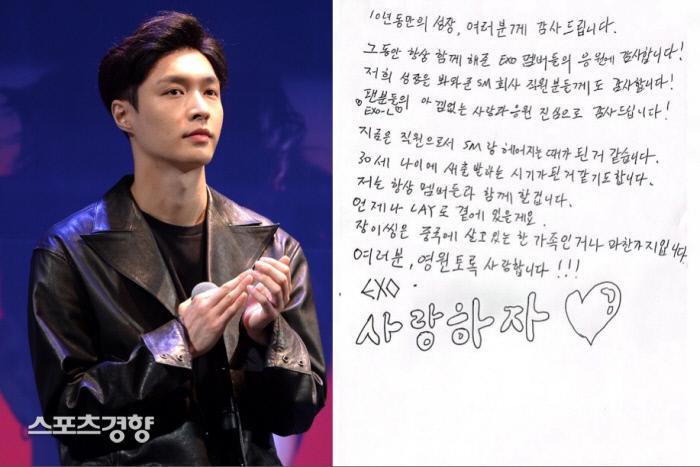 10년동안의 성장, 여러분께 감사드립니다.
그동안 항상 함께 해준 EXO 멤버들의 응원에 감사합니다!
저희 성장을 봐와준 SM 회사 직원분들께도 감사합니다!
팬분들의 아낌없는 사랑과 응원 진심으로 감사드립니다!
EXO-L
지금은 직원으로서 SM랑 헤어지는 때가 된 거 같습니다.
30세 나이에 새출발하는 시기가 된거 같기도합니다.
저는 항상 멤버들과 함께 할겁니다.
언제나 LAY로 곁에 있을게요.
장이씽은 중국에 살고있는 한 가족인거나 마찬가지입니다.
여러분, 영원토록 사랑합니다!!!
EXO.
사랑하자
스포츠경향